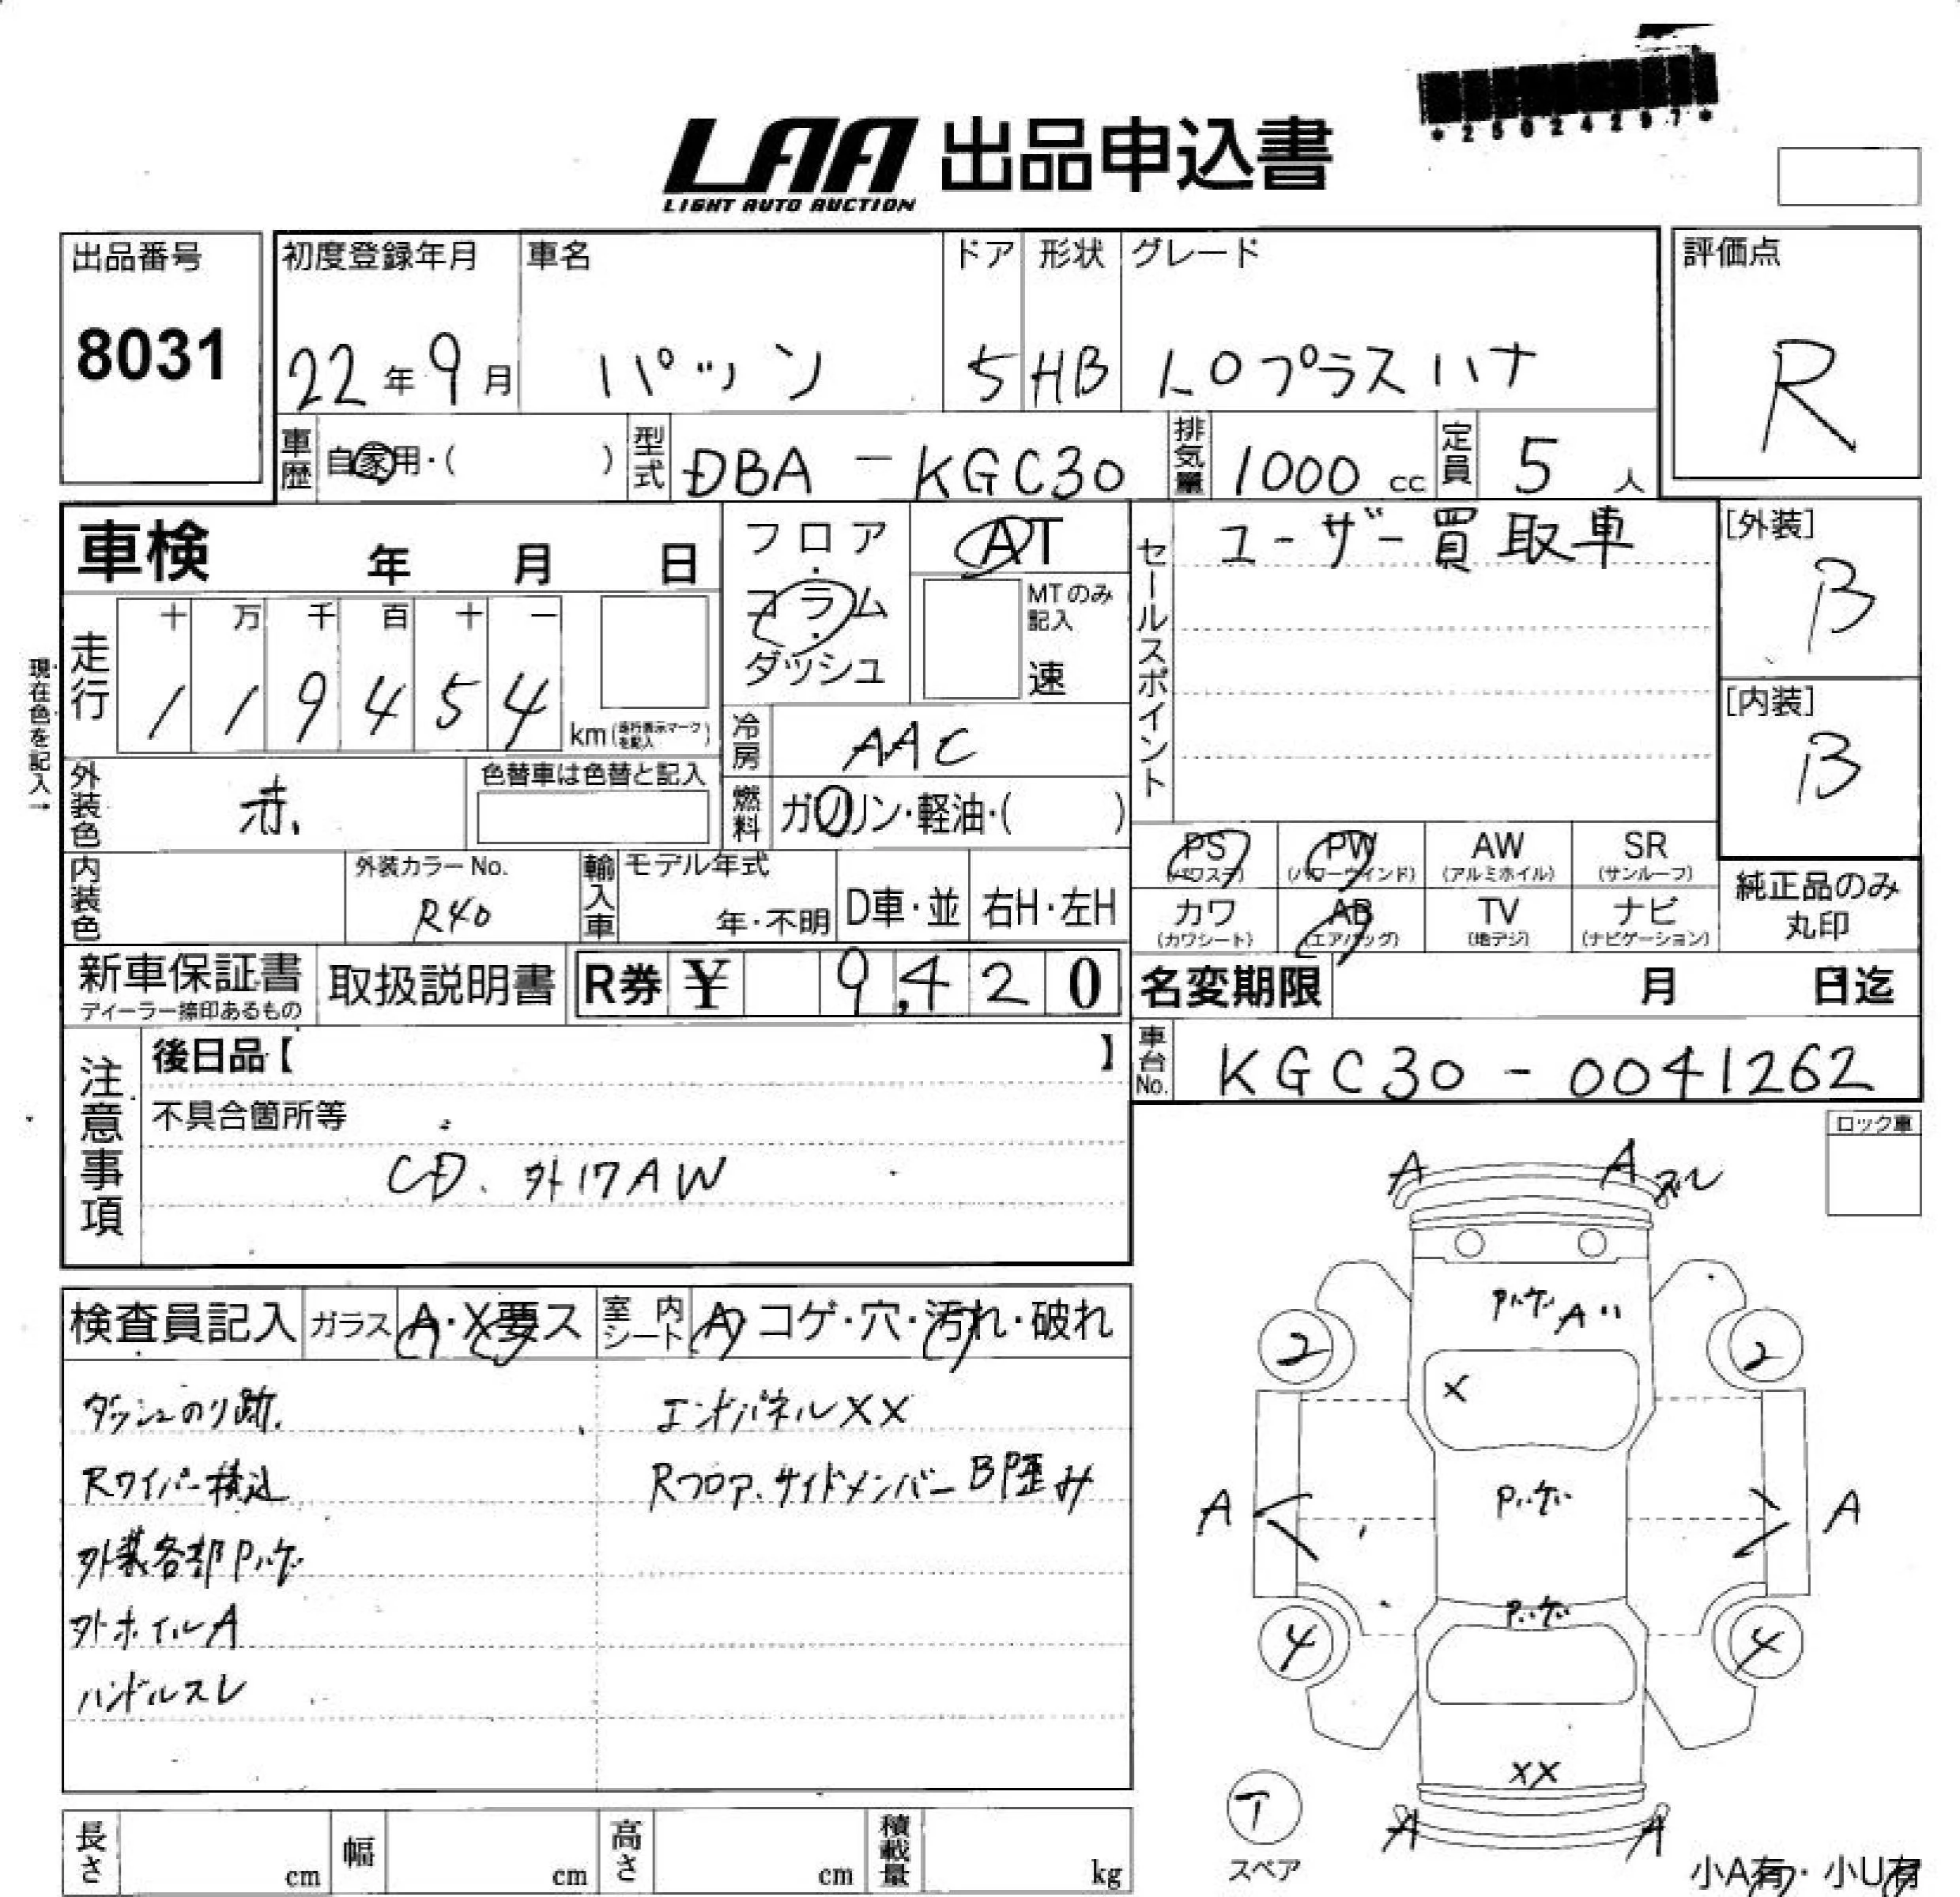 *25024297*
LAA 出品申込書
LIGHT AUTO AUCTION
出品番号 初度登録年月 車名 ドア 形状 グレード 評価点
8031 22年9月 パッソ 5 HB 1.0プラスハナ R
車歴 自家用・( ) 型式 DBA-KGC30 排気量 1000cc 定員 5人
車検 年 月 日 フロア・コラム・ダッシュ AT
MTのみ記入 速
セールスポイント ユーザー買取車
[外装] B
[内装] B
走行 十 万 千 百 十 一
1 1 9 4 5 4 km(走行表示マークを記入)
現在色を記入→
冷房 AAC
外装色 赤 色替車は色替と記入
燃料 ガソリン・軽油・( )
PS(パワステ) PW(パワーウインド) AW(アルミホイル) SR(サンルーフ)
カワ(カワシート) AB(エアバッグ) TV(地デジ) ナビ(ナビゲーション)
純正品のみ丸印
内装色 外装カラーNo. R40 輸入車 モデル年式 年・不明 D車・並 右H・左H
新車保証書 ディーラー捺印あるもの 取扱説明書 R券 ¥ 9,420
名変期限 月 日迄
車台No. KGC30-0041262
注意事項 後日品【 】
不具合箇所等
CD、外17AW
ロック車
検査員記入 ガラス A・X要ス 室内シート A・コゲ・穴・汚れ・破れ
ダッシュのり跡 エンドパネルXX
Rワイパー積込 Rフロア、サイドメンバーB歪み
外装各部Pハゲ
外ホイルA
ハンドルスレ
A A ズレ
Pハゲ A
2 2
X
A Pハゲ A
Pハゲ
4 4
XX
T
スペア
A A
小A有・小U有
長さ cm 幅 cm 高さ cm 積載量 kg